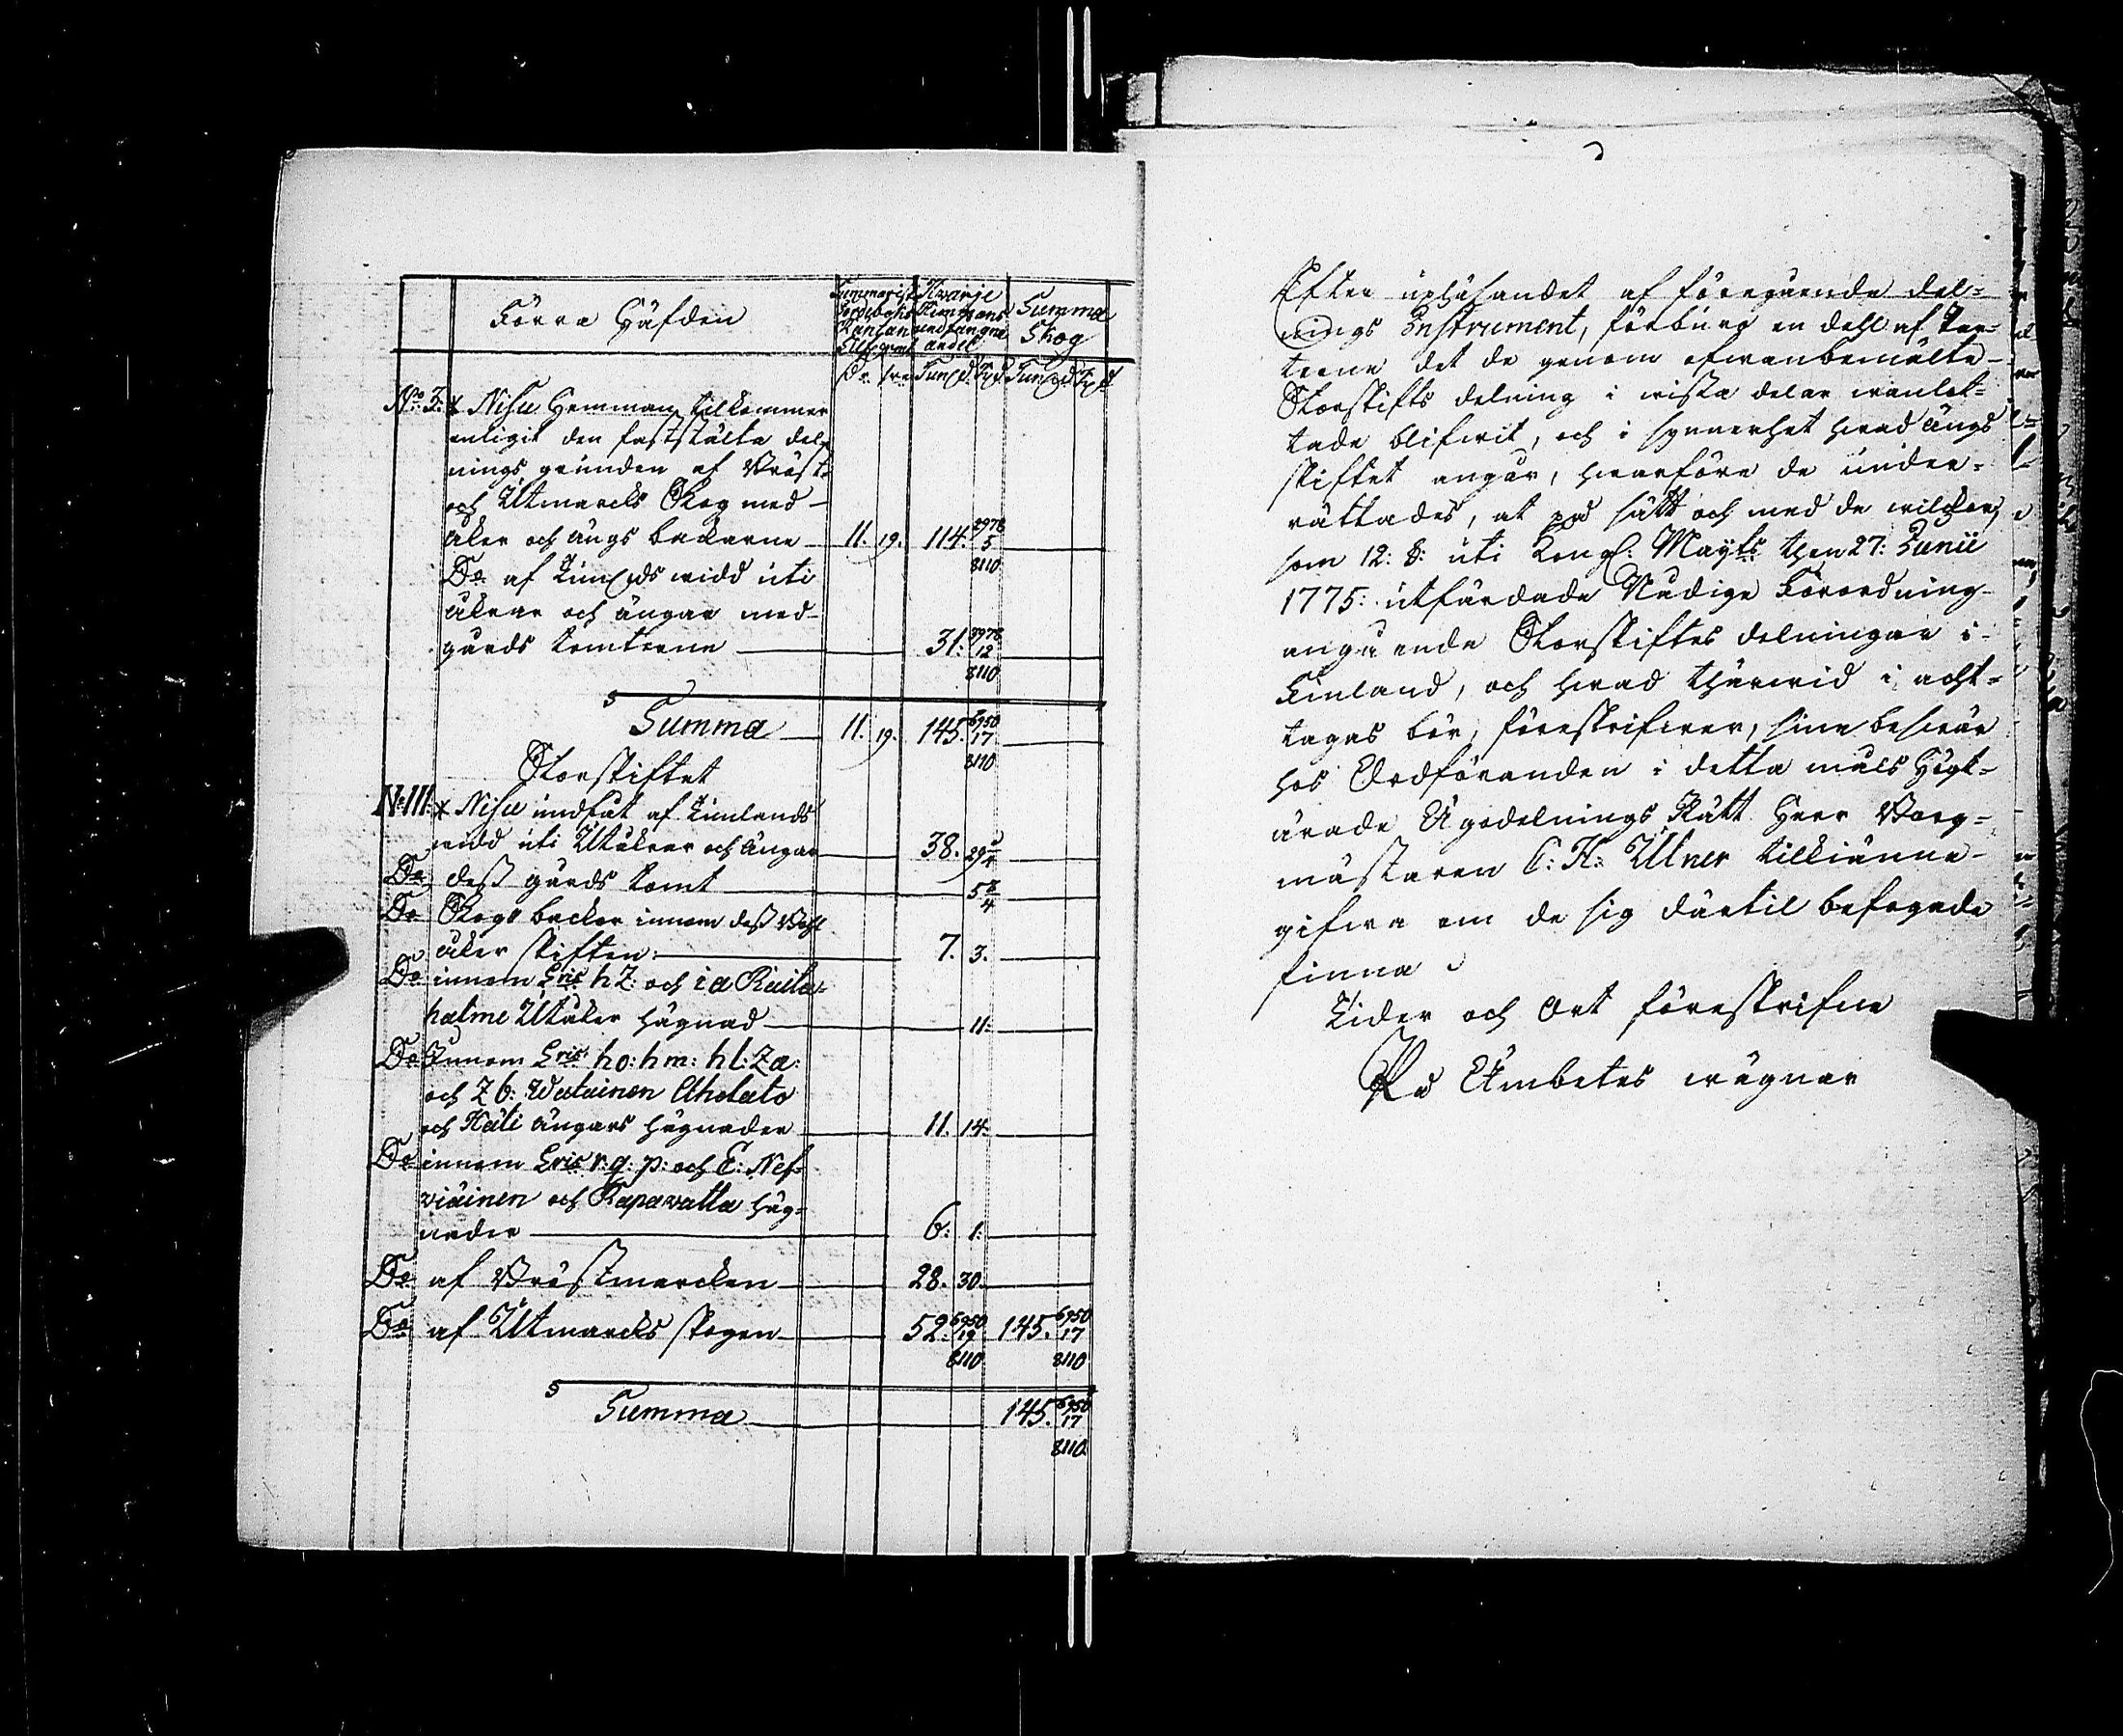 Förra Häfden
Hvarje
Hemmans
undfangna
andel
Summa
Skog
No 3. * Nisu Hemman tilkommer
enligit den faststälta del=
nings grunden af Bröst=
och Utmarcks Skog med
åker och ängs backarne 11. 19. 114. 2978
5
8110
Do af Timlands widd uti
åkrar och ängar med
gårds tomterne 31. 3978
12
8110
Summa 11. 19. 145. 6950
17
8110
Storskiftet
No III. * Nisu undfåt af Timlands
widd uti Utåkrar och Ängar 38. 29
Do dess gårds tomt 5 3/4
Do Skogs backar innom dess
åker skiften: 7. 3.
Do innom Lris hZ: och ia
halme Utåker hägnad 11:
Do Innom Lris ho: hm: hl: Za:
och Zb: Watainen Aholato
och Käti ängars hägnader 11. 14:
Do innom Lris r: q: p: och E: Nef=
viäinen och Rapavatta häg=
nader 6: 1:
Do af Bröstmarcken 28. 30.
Do af Utmarcks skogen 52. 6950 145. 6950
19 17
8110 8110
Summa 145. 6950
17
8110
Efter upläsandet af föregående del=
nings Instrument, förburo en dehl af Par=
terne det de genom ofwanbemälte
Storskifts delning i wissa delar wanlot=
tade blifwit, och i synnerhet hwad ängs
skiftet angår, hwarföre de under=
rättades, at på sätt och med de wilckor,
som 12: §: uti Kongl: Mayts then 27: Junii
1775: utfärdade Nådige Förordning
angående Storskiftes delningar i
Finland, och hwad thärwid i acht=
tagas bör, föreskrifwer, sine beswär
hos Ordföranden i detta måls Högt=
ärade Ägodelnings Rätt Herr Borg=
mästaren C: H: Ulner tillkänna
gifwa om de sig därtil befogade
finna
Tider och Ort föreskrifne
På Ämbetes wägnar